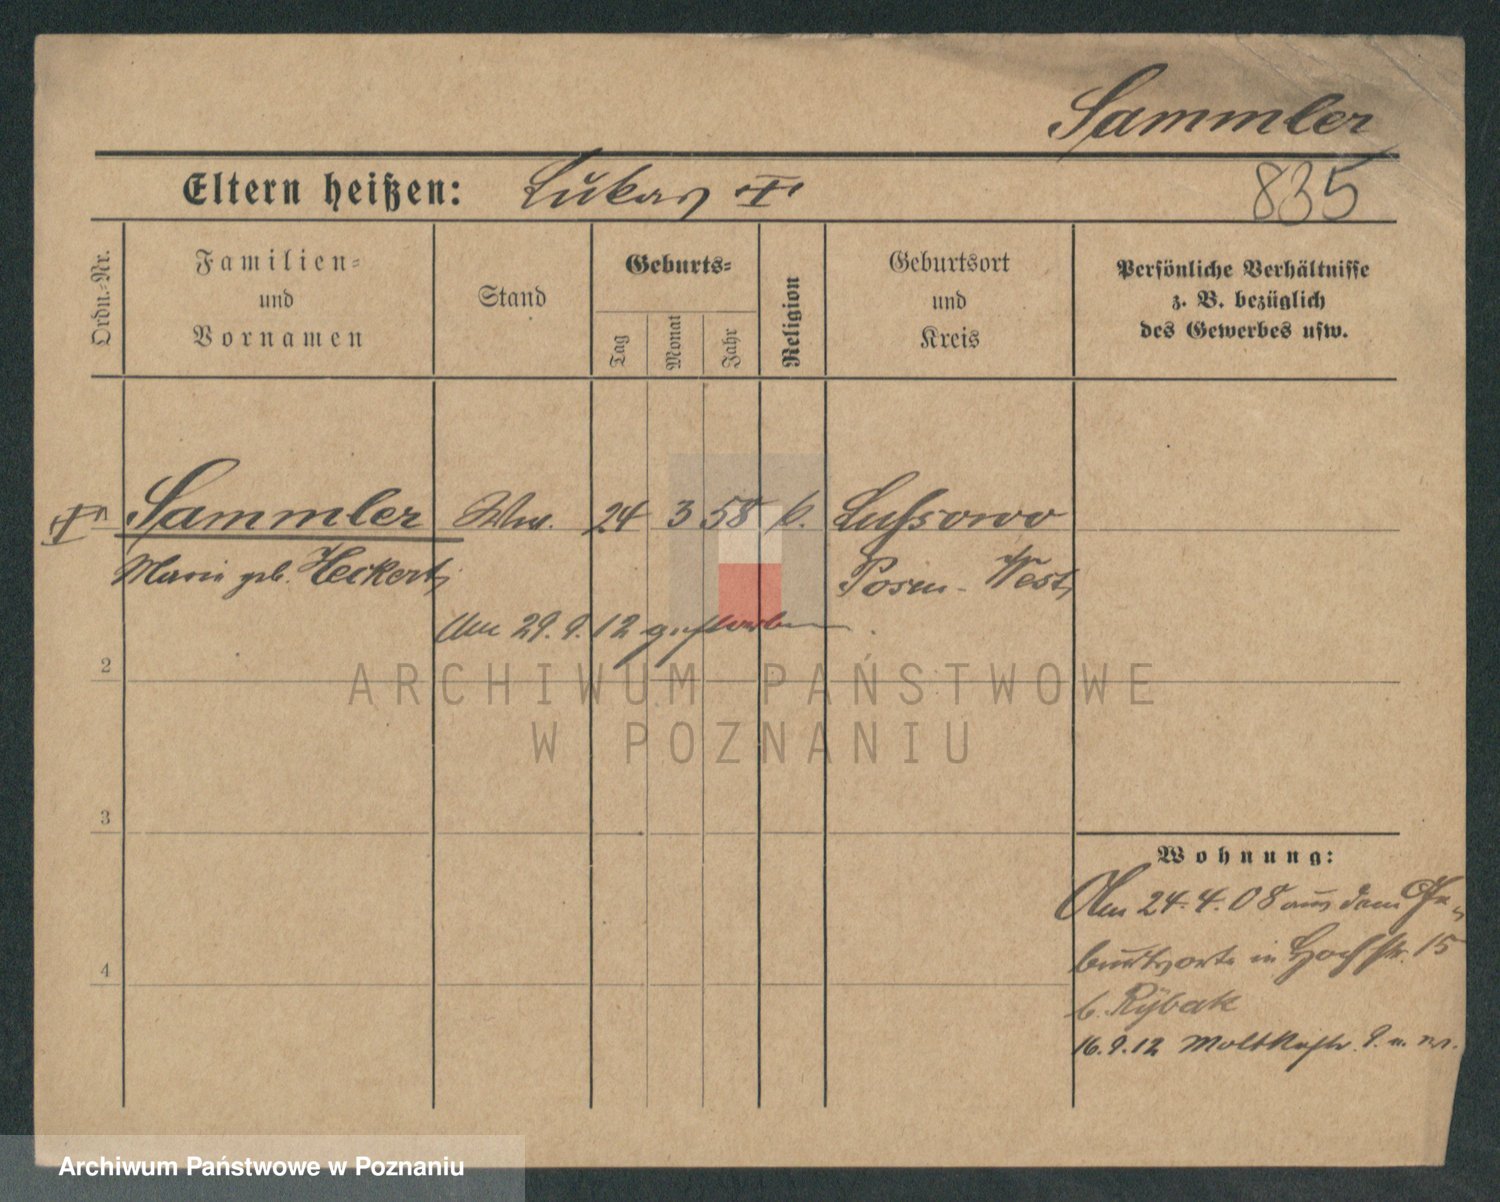 Sammler
835
Eltern heißen: Lukas
Ordn.-Nr.
Familien-
und
Vornamen
Stand
Geburts-
Tag
Monat
Jahr
Religion
Geburtsort
und
Kreis
Persönliche Verhältnisse
z. B. bezüglich
des Gewerbes usw.
Sammler Ww. 24 3 58 k. Lussowo
Marie geb. Heckert, Posen-West,
Am 29.9.12 gestorben.
2
ARCHIWUM PAŃSTWOWE
W POZNANIU
3
Wohnung:
Am 24.4.08 aus dem Ge-
burtsorte in Hochstr. 15
b. Rÿbak
4
16.9.12 Moltkestr. 9.
Archiwum Państwowe w Poznaniu